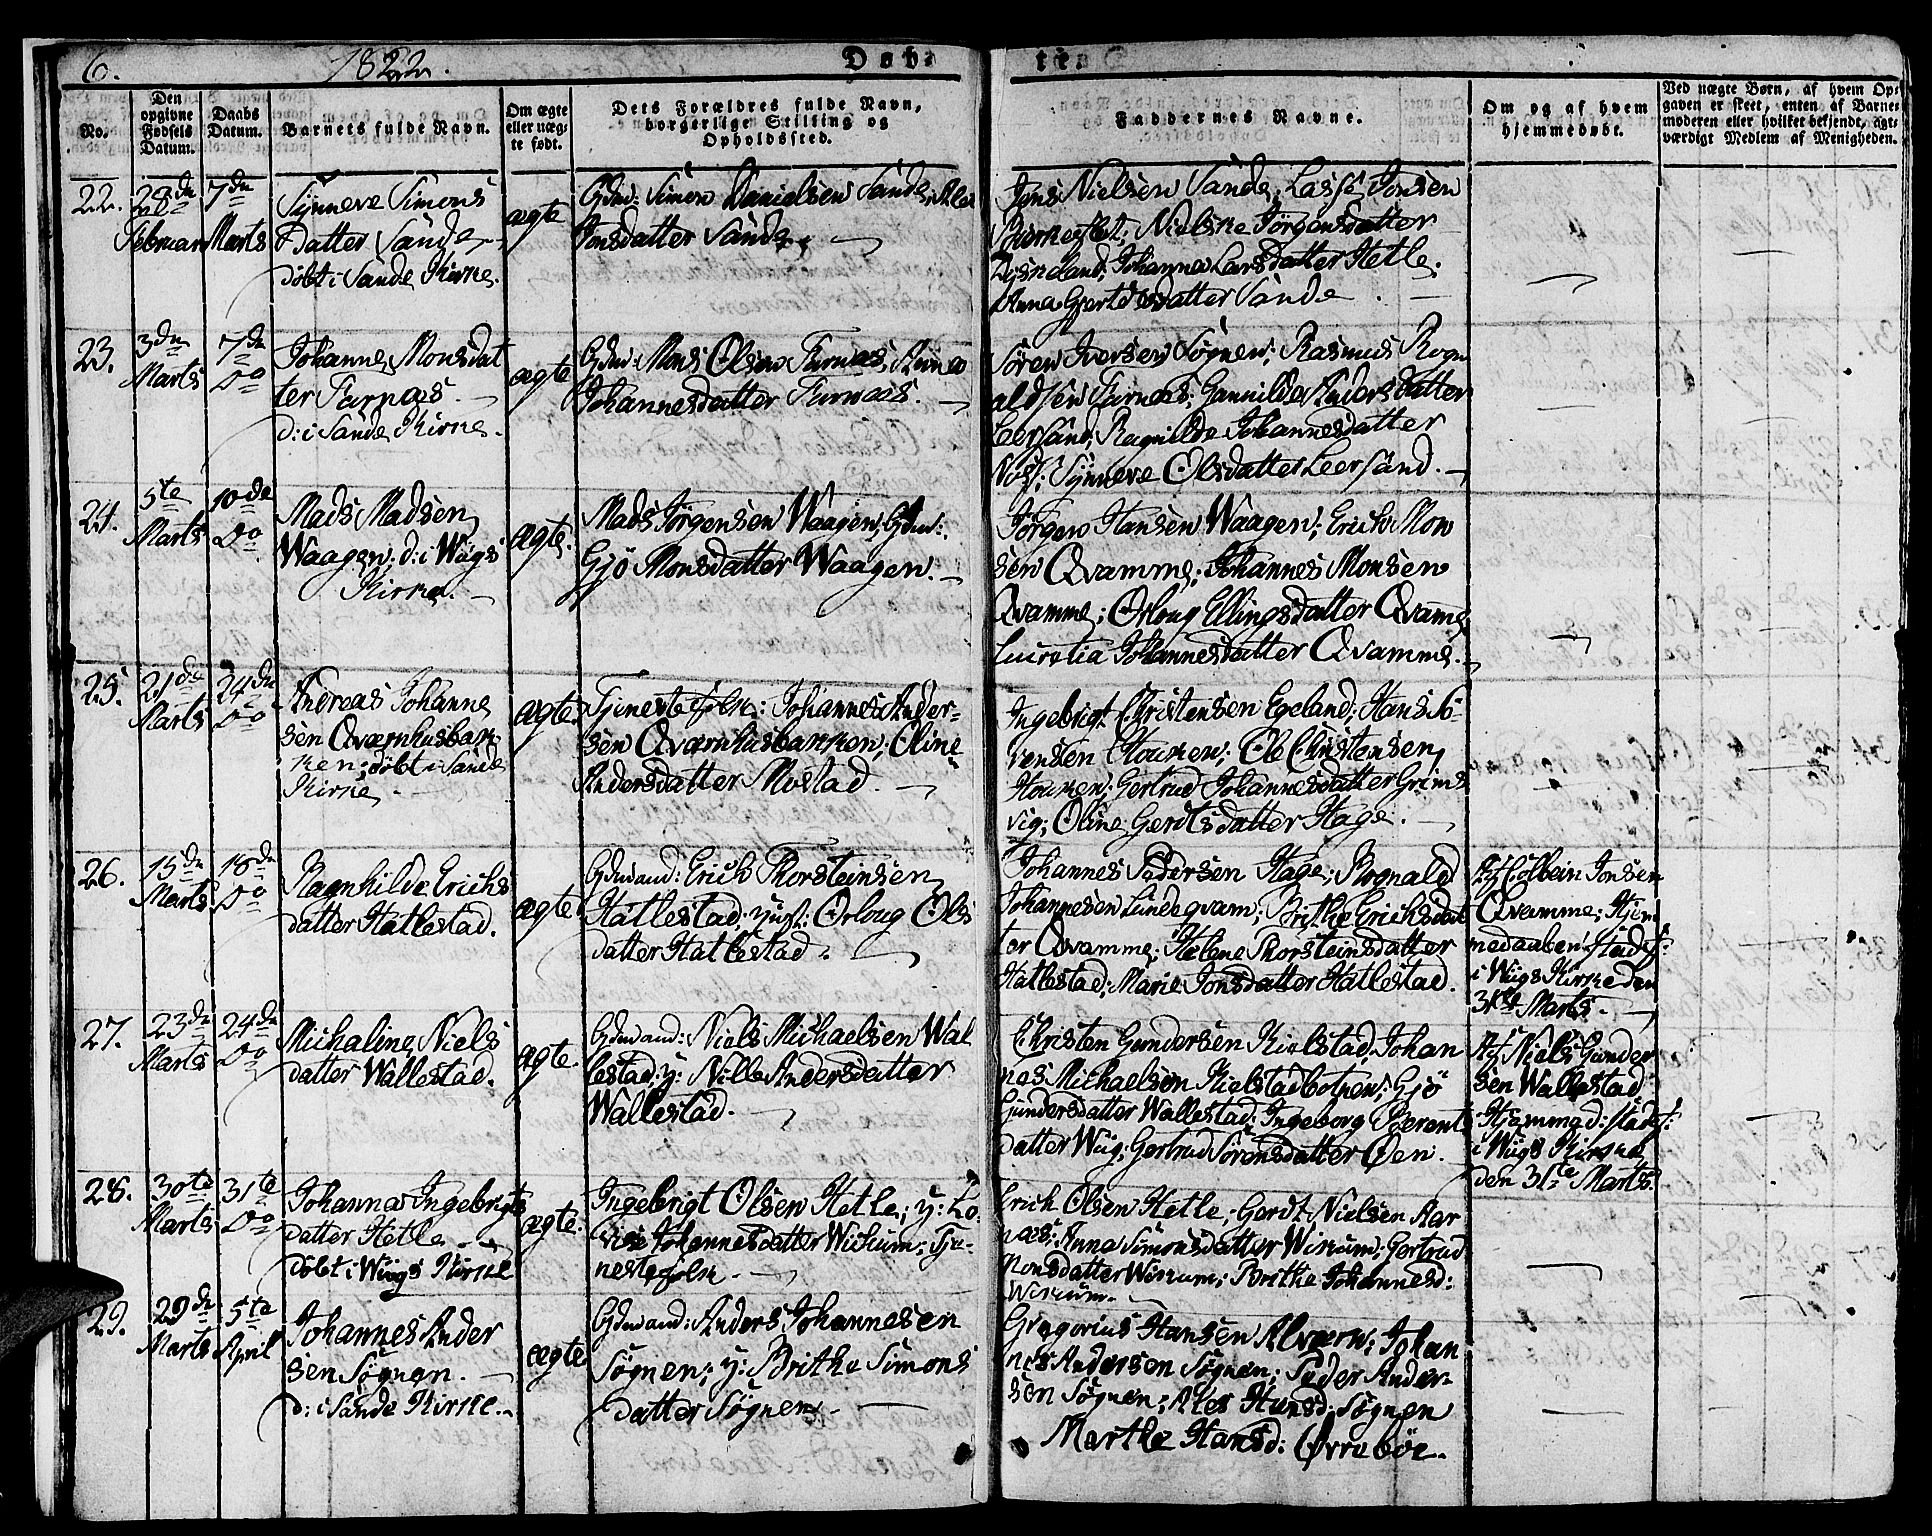 6.
1822.
Døb-
te.
No.
Den
opgivne
Fødsels
Datum.
Daabs
Datum.
Barnets fulde Navn.
Om ægte
eller uæg-
te født.
Dets Forældres fulde Navn,
borgerlige Stilling og
Opholdssted.
Faddernes Navne.
Om og af hvem
hjemmedøbt.
Ved uægte Børn, af hvem Op-
gaven er skeet, enten af Barne-
moderen eller hvilket bekjendt, agt-
værdigt Medlem af Menigheden.
22.
28de
Februar
7de
Marts
Synneve Simons
Datter Sande
døbt i Sande Kirke.
ægte
Gdm: Simon Danielsen Sande;
Jonsdatter Sande.
Jens Nielsen Sande; Lasse Jonsen
Nielske Jørgensdatter
Johanna Larsdatter Hetle;
Anna Gjertsdatter Sande.
23.
3die
Marts
7de
Do
Johanne Monsdat
ter Furnæs.
d: i Sande Kirke.
ægte
Gdm: Mons Olsen Furnæs, Anna
Johannesdatter Furnæs.
Søren Iversen Søgnen; Rasmus Rogn
aldsen Furnæs; Gunnilde Andersdatter
Leersand; Ragnilde Johannesdatter
Synneve Olsdatter Leersand.
24.
5te
Marts
10de
Do
Mads Madsen
Waagen; d: i Wiigs
Kirke.
ægte.
Mads Jørgensen Waagen, Gdm:
Gjø Monsdatter Waagen.
Jørgen Hansen Waagen; Erich Mon
sen Qvamme; Johannes Monsen
Qvamme; Orloug Ellingsdatter Qvamme,
Lucretia Johannesdatter Qvamme.
25.
21de
Marts
24de
Do
Andreas Johanne
sen Qværnhusbak
ken; døbt i Sande
Kirke.
ægte.
Tjenestefolk: Johannes Ander-
sen Qværnhusbakken; Oline
Andersdatter Mostad.
Ingebrigt Christensen Egeland; Hans Si-
vensten Houken; Ole Christensen
Houken; Gertrud Johannesdatter Grims
vig; Oline Gerdtsdatter Hage.
26.
15de
Marts
18de
Do
Ragnhilde Erichs
datter Hatlestad.
ægte.
Gdmand: Erich Thorsteinsen
Hatlestad; Orloug Ols
datter Hatlestad.
Johannes Pedersen Hage; Rognald
Johannesen Lundeqvam; Brithe Erichsdat
ter Qvamme; Helene Thorsteinsdatter
Hatlestad; Marie Jonsdatter Hatlestad.
Af Colbein Jonsen
Qvamme; Hjem
medaaben stadf:
i Wiigs Kirke den
31te Marts.
27.
23de
Marts
24de
Do
Michaline Niels
datter Wallestad.
ægte.
Gdmand: Niels Michaelsen Wal
lestad; y: Nille Andersdatter
Wallestad.
Christen Gundersen Kielstad; Johan
nes Michaelsen Kielstadbotnen; Gjø
Gundersdatter Wallestad; Ingeborg Beerents
datter Wiig; Gertrud Sørensdatter Øen.
Af Niels Gunder
sen Wallestad
Hjemmed: stadf:
i Wiigs Kirke
den 31te Marts.
28.
30te
Marts
31te
Do
Johanna Ingebrigts
datter Hetle
døbt i Wiigs Kirke
ægte.
Ingebrigt Olsen Hetle; y: Lo-
vise Johannesdatter Wikum; Tje-
nestefolk.
Erich Olsen Hetle; Gerdt Nielsen Aar
næs; Anna Simonsdatter Wikum; Gertrud
Monsdatter Wikum; Brithe Johannesd:
Wikum.
29.
29de
Marts
5te
April
Johannes Ander
sen Søgnen.
d: i Sande Kirke.
ægte
Gdmand: Anders Johannesen
Søgnen; y: Brithe Simons
datter Søgnen
Gregorius Hansen Alværn; Johan
nes Andersen Søgnen; Peder Ander-
sen Søgnen; Ales Hansd: Søgnen
Marthe Hansd: Øvrebøe.